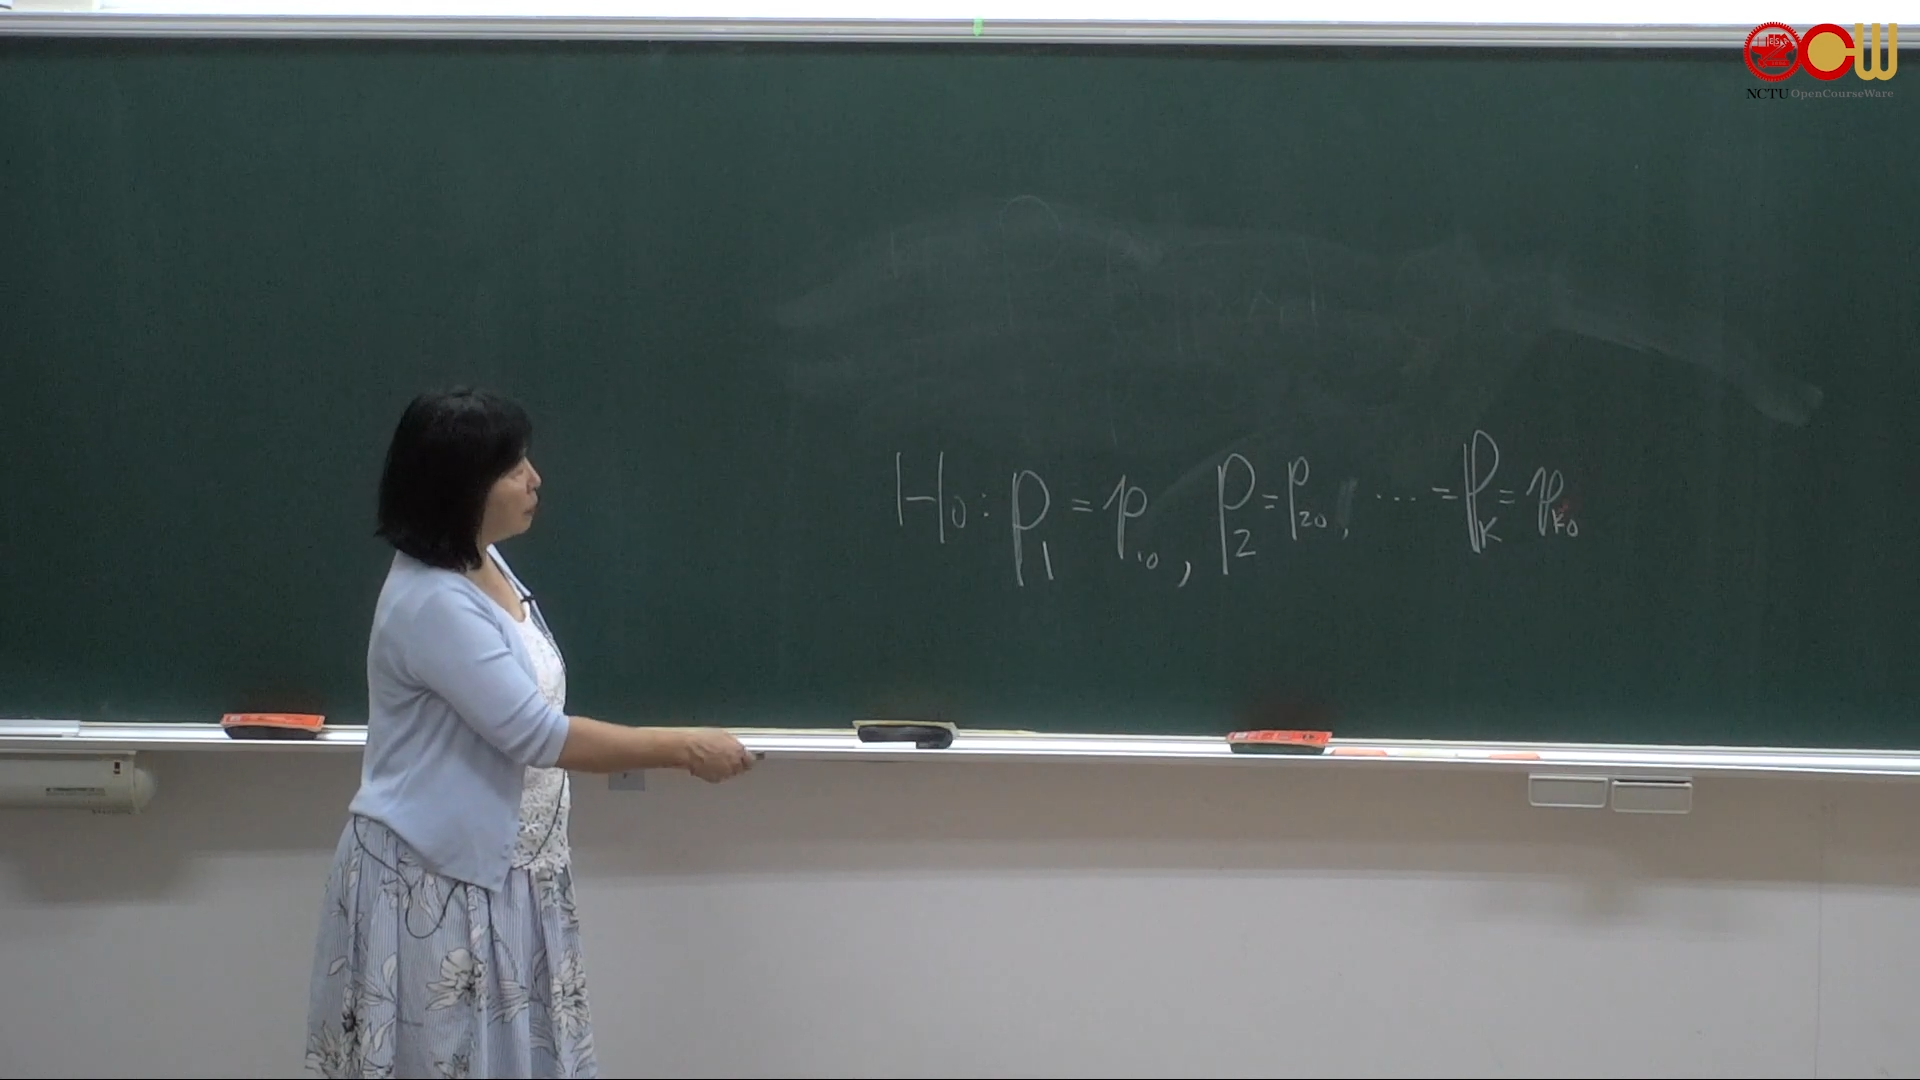 NCTU OpenCourseWare
H₀: p₁ = p₁₀, p₂ = p₂₀, ... = p_K = p_K₀